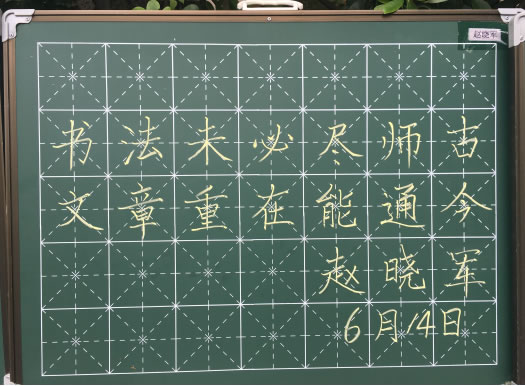 赵晓军
书法未必尽师古
文章重在能通今
赵晓军
6月14日